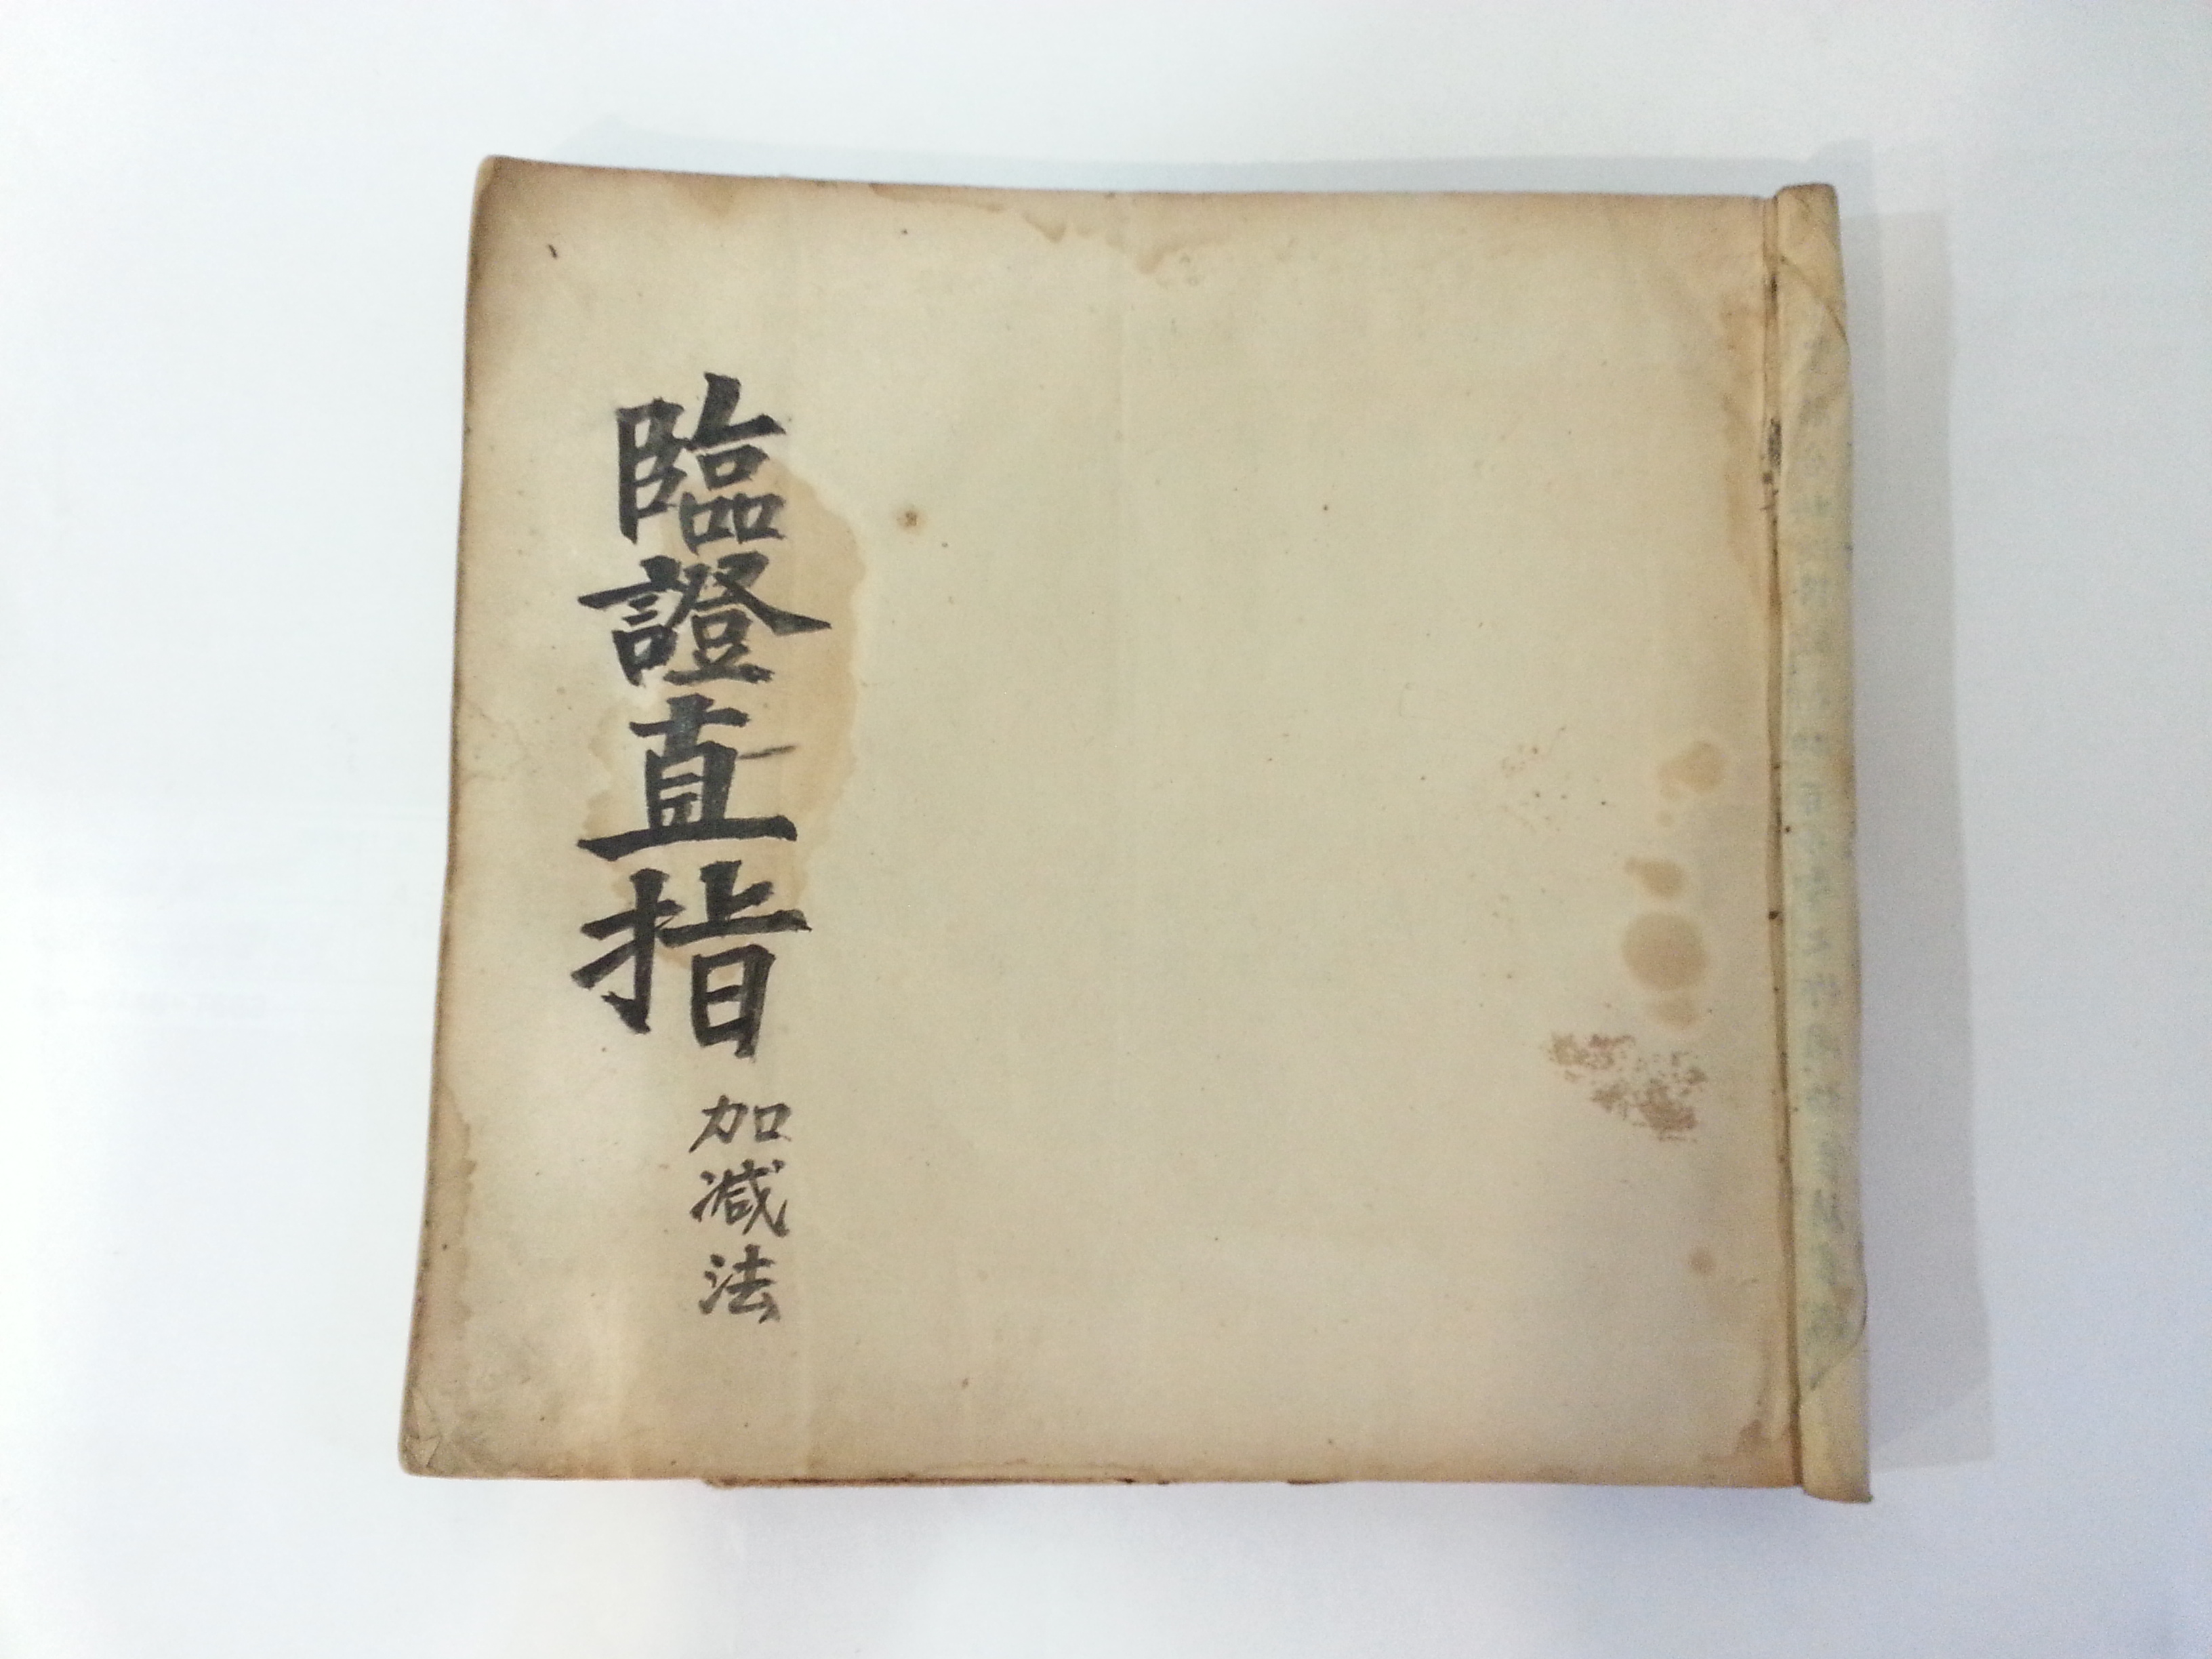 臨證直指
加減法